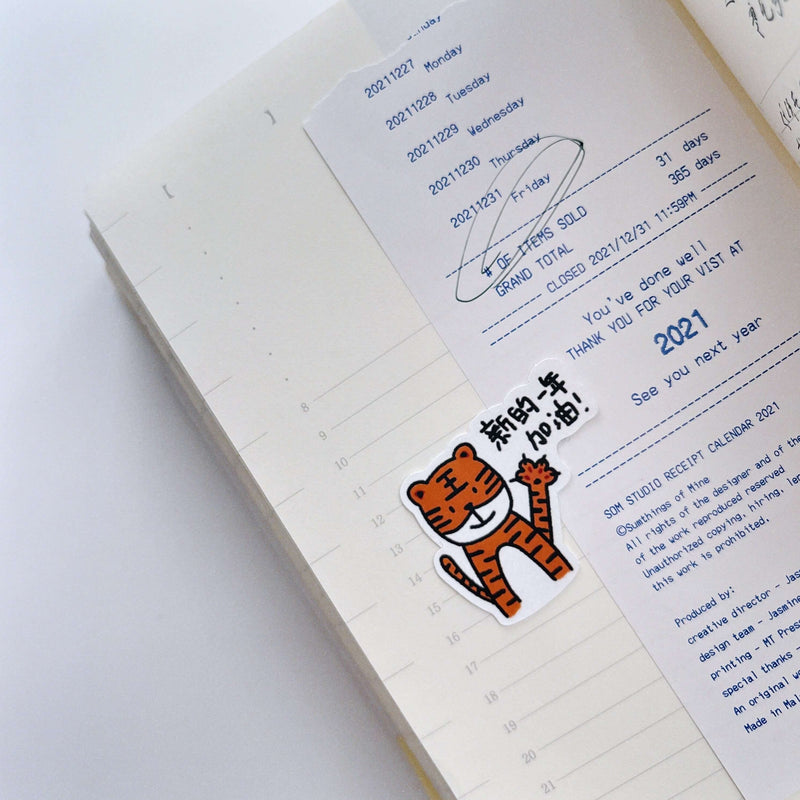 20211227 Monday
20211228 Tuesday
20211229 Wednesday
20211230 Thursday
20211231 Friday
# OF ITEMS SOLD 31 days
GRAND TOTAL 365 days
CLOSED 2021/12/31 11:59PM
You've done well
THANK YOU FOR YOUR VIST AT
2021
See you next year
SOM STUDIO RECEIPT CALENDAR 2021
©Sumthings of Mine
All rights of the designer and of the
of the work reproduced reserved
Unauthorized copying, hiring,
this work is prohibited.
Produced by:
creative director -
design team - Jasmine
printing - MT
special thanks -
An original
Made in
新的一年
加油!
王
8
9
10
11
12
13
14
15
16
17
18
19
20
21